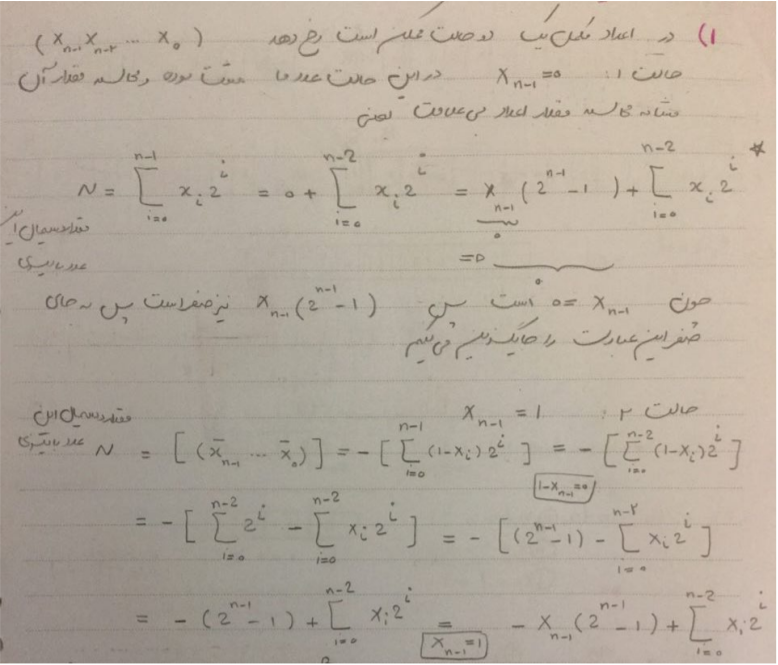 1) در اعداد مکمل یک دو حالت ممکن است رخ دهد (x_{n-1} x_{n-2} ... x_0)
حالت ۱: x_{n-1} = 0 در این حالت عدد ما مثبت بوده و محاسبه مقدار آن
مشابه محاسبه مقدار اعداد بی علامت یعنی
N = \sum_{i=0}^{n-1} x_i 2^i = 0 + \sum_{i=0}^{n-2} x_i 2^i = x_{n-1} (2^{n-1} - 1) + \sum_{i=0}^{n-2} x_i 2^i *
مقدار دسیمال
عدد باینری
0
=0
0
چون x_{n-1} = 0 است پس x_{n-1} (2^{n-1} - 1) نیز صفر است پس به جای
صفر این عبارت را جایگذین می کنیم
حالت ۲: x_{n-1} = 1
مقدار دسیمال این
عدد باینری
N = [(\bar{x}_{n-1} ... \bar{x}_0)] = -[\sum_{i=0}^{n-1} (1-x_i) 2^i] = -[\sum_{i=0}^{n-2} (1-x_i) 2^i]
1-x_{n-1}=0
= -[\sum_{i=0}^{n-2} 2^i - \sum_{i=0}^{n-2} x_i 2^i] = -[(2^{n-1} - 1) - \sum_{i=0}^{n-2} x_i 2^i]
= -(2^{n-1} - 1) + \sum_{i=0}^{n-2} x_i 2^i = -x_{n-1} (2^{n-1} - 1) + \sum_{i=0}^{n-2} x_i 2^i
x_{n-1}=1